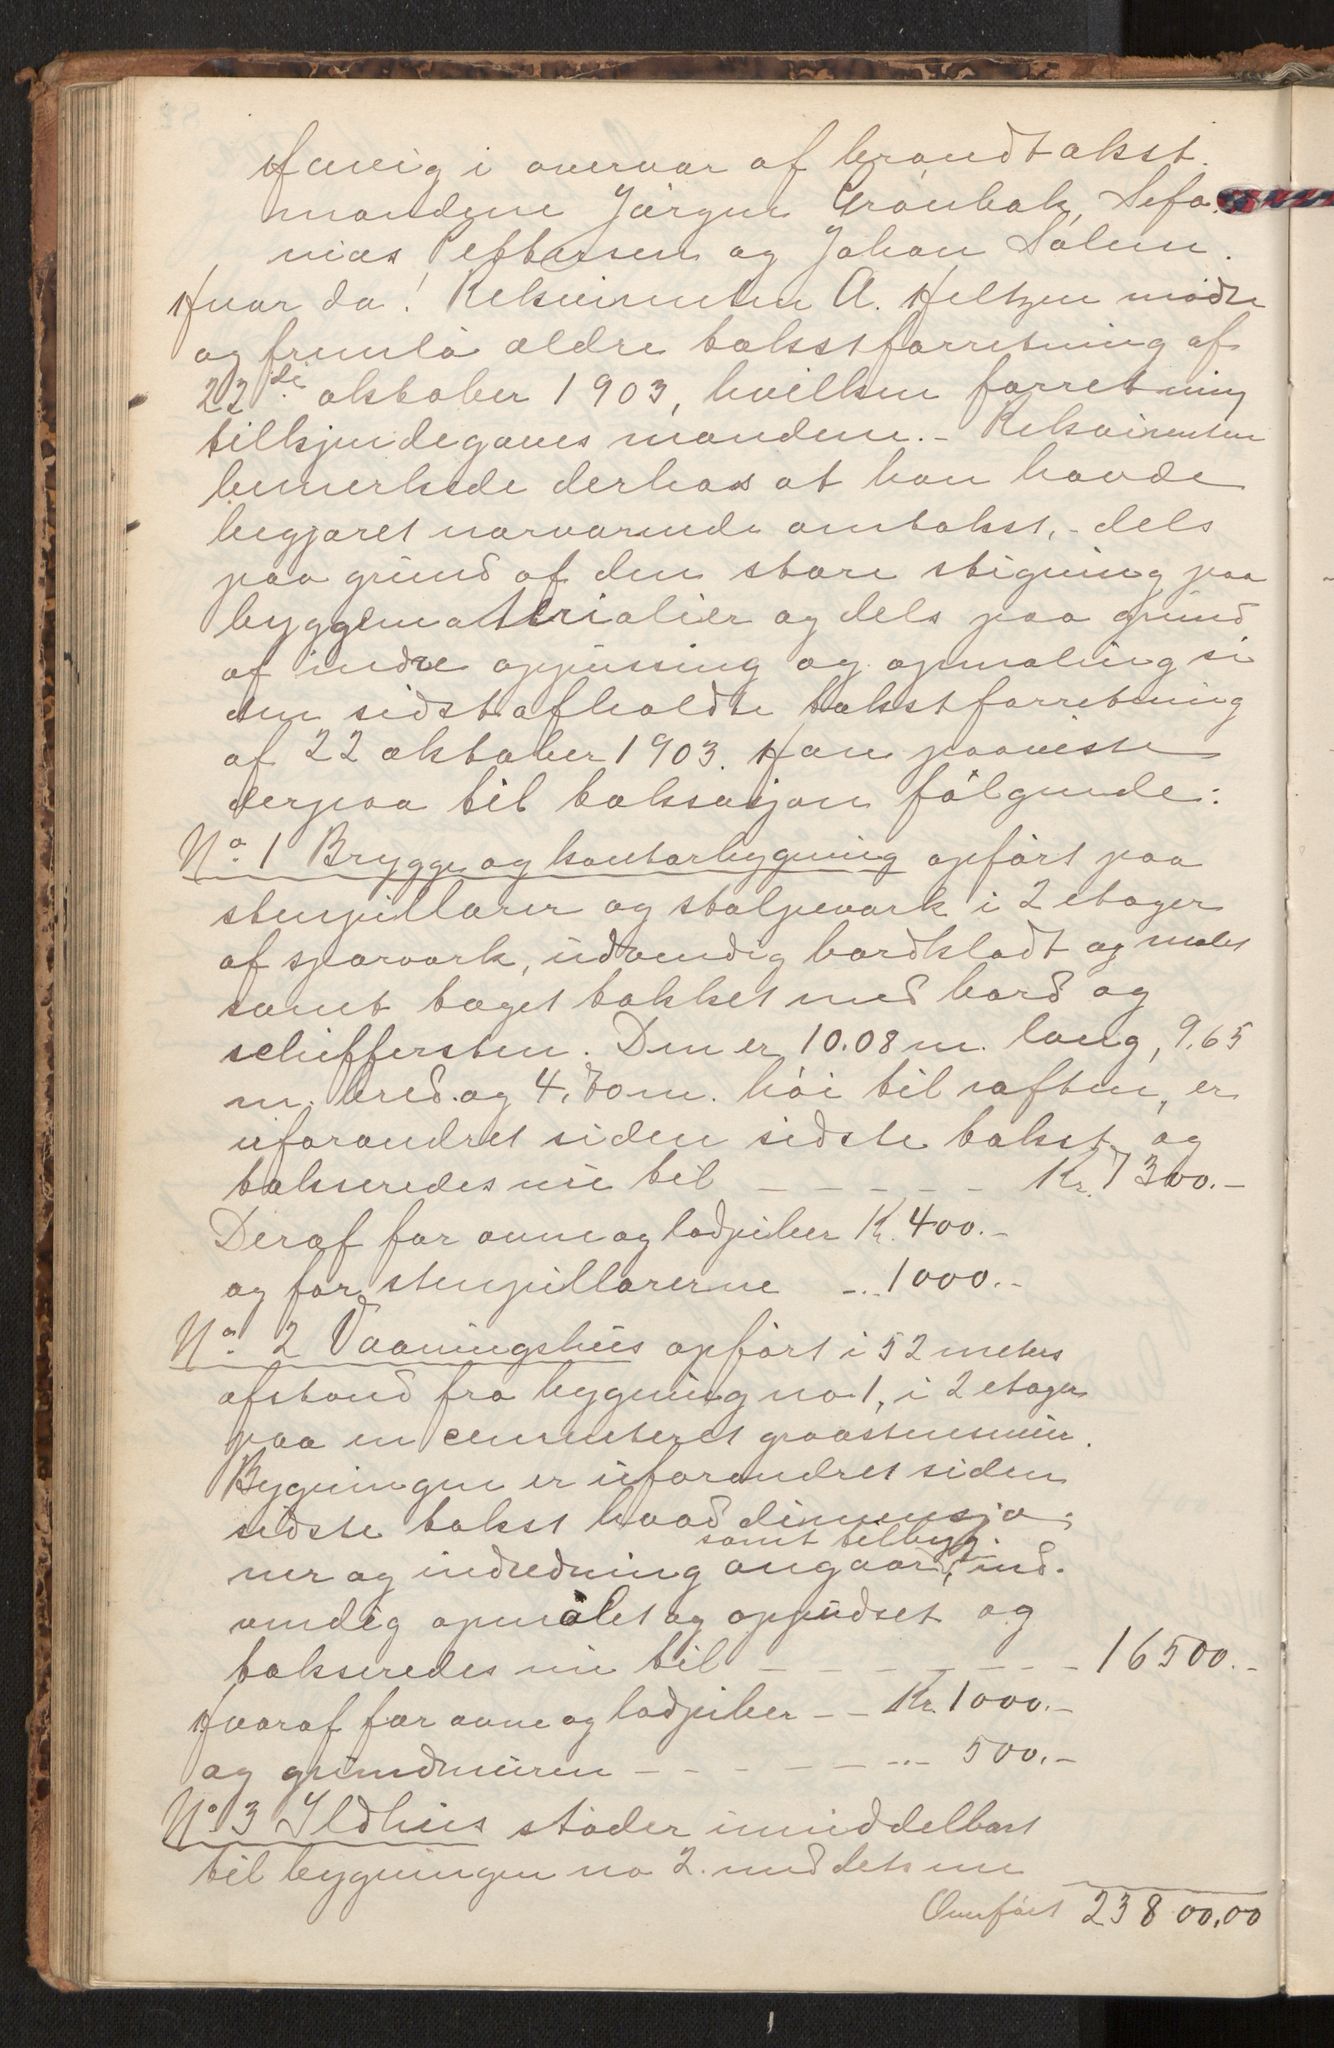 Hareig i overvær af brandtakst-
mændene Jørgen Grønbæk, Sefa-
nias Pettersen og Johan Solem.
Hvor da! Rekvirenten A. Heltzen mødte
og fremla ældre takstforretning af
22de oktober 1903, hvilken forretning
tilkjendegaves mændene. – Rekvirenten
bemerkede derhos at han havde
begjæret nærværende omtakst, – dels
paa grund af den store stigning paa
byggematerialier og dels paa grund
af indre oppussing og opmaling si
den sidst afholdte takstforretning
af 22 oktober 1903. Han paaviste
derpaa til taksasjon følgende:
No. 1 Brygge og kontorbygning opført paa
stenpillarer og stolpeverk i 2 etager
af sparverk, udvendig bordklædt og malet
samt taget tækket med bord og
schiffersten. Den er 10.08 m. lang, 9.65
m. bred og 4.70 m. høi til raften, er
uforandret siden sidste takst og
takseredes nu til – – – – – Kr. 7300.–
Deraf for ovne og ladpiber Kr. 400.–
og for stenpillarerne – .. 1000.–
No. 2 Vaaningshus opført i 52 meters
afstand fra bygning no 1, i 2 etager
paa en cementeret graastensmur.
Bygningen er uforandret siden
sidste takst hvad dimensjo-
samt tilbyg.
ner og indredning angaar, ind-
vendig opmalet og oppudset og
takseredes nu til – – – – – – – 16500.–
Hvoraf for ovne og ladpiber – – Kr. 1000.–
og grundmuren – – – – – ... – 500.–
No 3 Ildhus støder umiddelbart
til bygningen no 2. med dets ene
Overført 23800,00